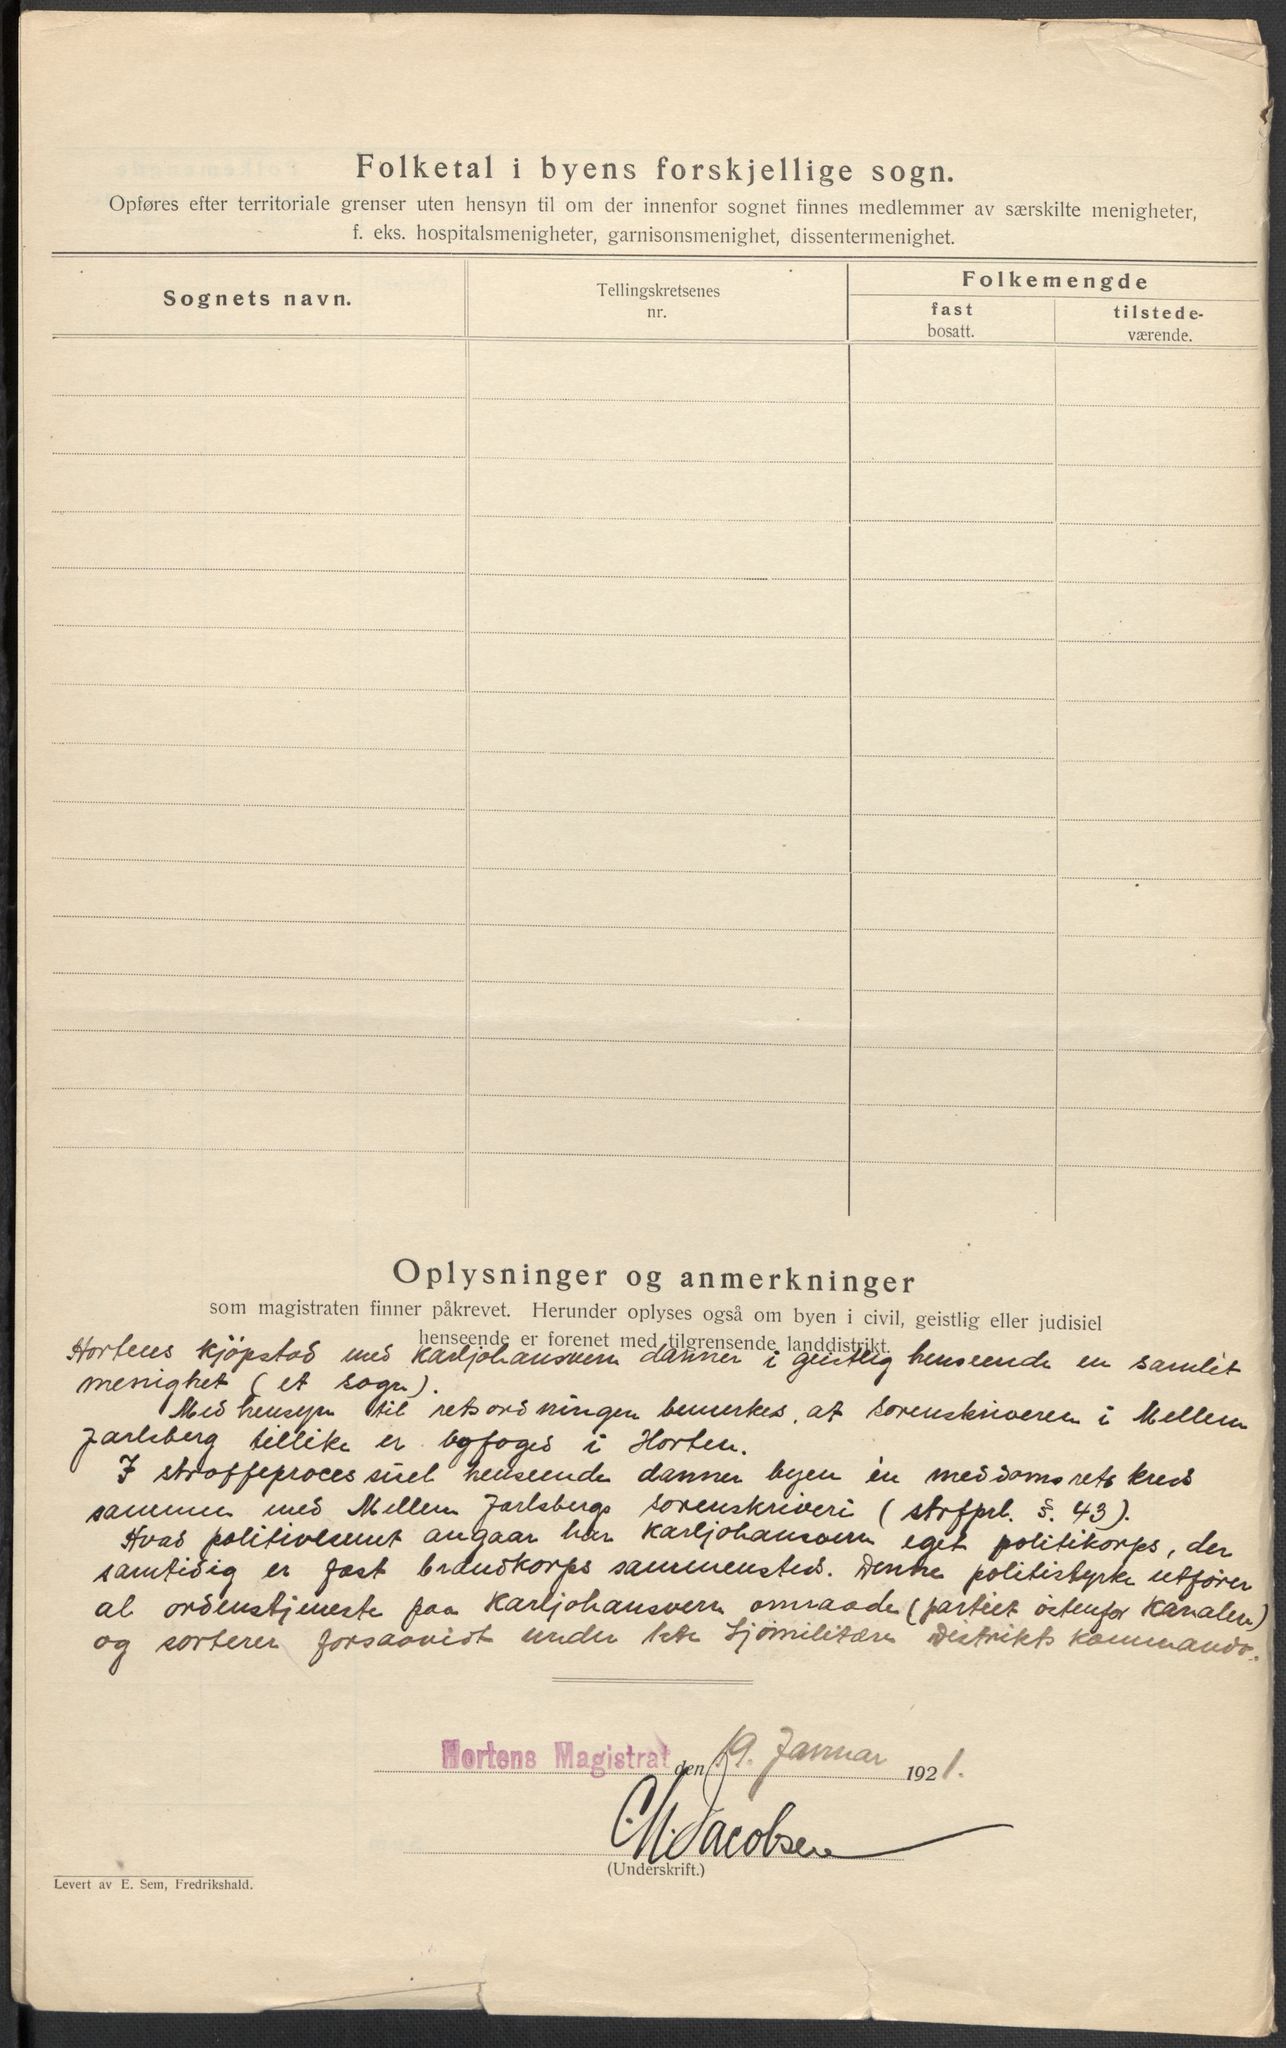 Folketal i byens forskjellige sogn.
Opføres efter territoriale grenser uten hensyn til om der innenfor sognet finnes medlemmer av særskilte menigheter,
f. eks. hospitalsmenigheter, garnisonsmenighet, dissentermenighet.
Sognets navn.
Tellingskretsenes
nr.
Folkemengde
fast
bosatt.
tilstede-
værende.
Oplysninger og anmerkninger
som magistraten finner påkrevet. Herunder oplyses også om byen i civil, geistlig eller judisiel
henseende er forenet med tilgrensende landdistrikt.
Hortens kjøpstad med Karljohansvern danner i geistlig henseende en samlet
menighet (et sogn).
Med hensyn til retsordningen bemerkes, at sorenskriveren i Mellem
Jarlsberg tillike er byfoged i Horten.
I straffeprocessuel henseende danner byen én meddomsretskreds
sammen med Mellem Jarlsbergs sorenskriveri (strfprl. §. 43).
Hvad politivesenet angaar har Karljohansvern eget politikorps, der
samtidig er fast brandkorps sammensteds. Denne politistyrke utfører
al ordenstjeneste paa Karljohansvern omraade (partiet østenfor Kanalen)
og sorterer forsaavidt under 1ste Sjømilitære Distrikts kommando.
Hortens Magistrat den 19. Januar 1921.
C. M. Jacobsen
(Underskrift.)
Levert av E. Sem, Fredrikshald.